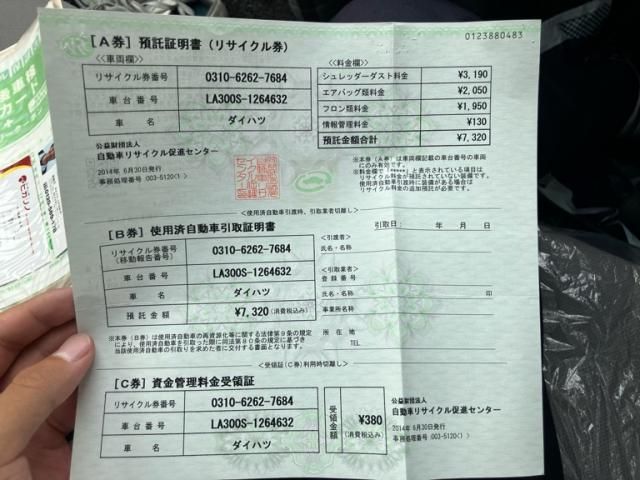 0123880483
[A券] 預託証明書 (リサイクル券)
《車両欄》
リサイクル券番号 0310-6262-7684
車台番号 LA300S-1264632
車名 ダイハツ
《料金欄》
シュレッダーダスト料金 ¥3,190
エアバッグ類料金 ¥2,050
フロン類料金 ¥1,950
情報管理料金 ¥130
預託金額合計 ¥7,320
公益財団法人
自動車リサイクル促進センター
2014年 6月30日発行
事務処理番号 :003-5120〈1〉
※本券(A券)は車両欄記載の車台番号の車両
にのみ有効です。
リサイクル料金が預託されていない装備です。
使用済自動車引渡時に装備がある場合は
リサイクル料金の追加預託が必要です。
<使用済自動車引渡時、引取業者切離し>
[B券] 使用済自動車引取証明書
引取日: 年 月 日
リサイクル券番号
(移動報告番号) 0310-6262-7684
車台番号 LA300S-1264632
車名 ダイハツ
預託金額 ¥7,320 (消費税込み)
<引渡者>
氏名・名称
<引取業者>
登録番号
氏名・名称 印
事業所名称
所在地
TEL
※本券(B券)は使用済自動車の再資源化等に関する法律第9条の規定
により、使用済自動車を引取った際に同法第80条の規定に基づき
当該使用済自動車の引取りを求めた者に交付する書面となります。
<受領証(C券)利用時切離し>
[C券] 資金管理料金受領証
リサイクル券番号 0310-6262-7684
車台番号 LA300S-1264632
車名 ダイハツ
受領金額 ¥380 (消費税込み)
公益財団法人
自動車リサイクル促進センター
2014年 6月30日発行
事務処理番号 :003-5120〈1〉